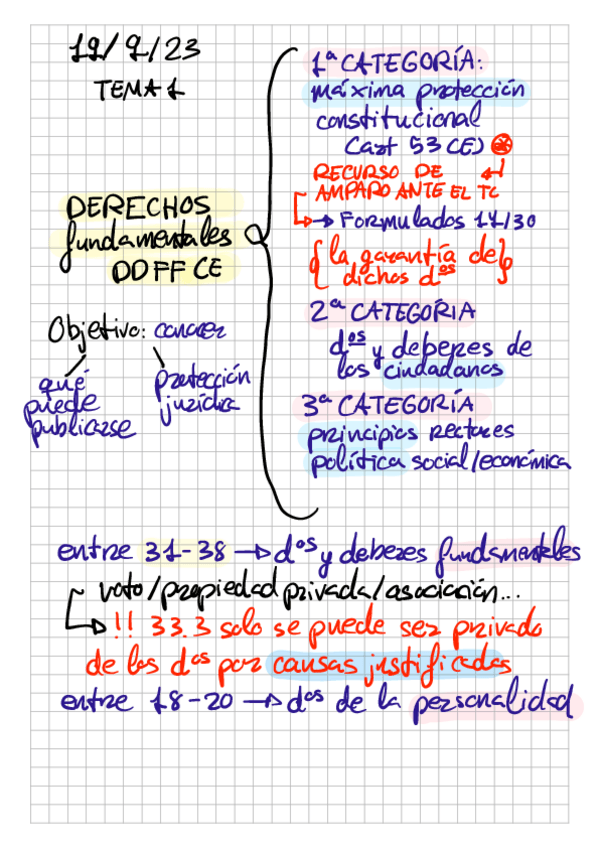 19/9/23
TEMA 1
DERECHOS
fundamentales
DDFF CE
Objetivo: conocer
qué
puede
publicarse
protección
jurídica
1ª CATEGORÍA:
máxima protección
constitucional
(art 53 CE)
RECURSO DE
AMPARO ANTE EL TC
→ Formulados 14/30
{la garantía de}
dichos dºs
2ª CATEGORÍA
dºs y deberes de
los ciudadanos
3ª CATEGORÍA
principios rectores
política social/económica
entre 31-38 → dºs y deberes fundamentales
voto/propiedad privada/asociación...
!! 33.3 solo se puede ser privado
de los dºs por causas justificadas
entre 18-20 → dºs de la personalidad